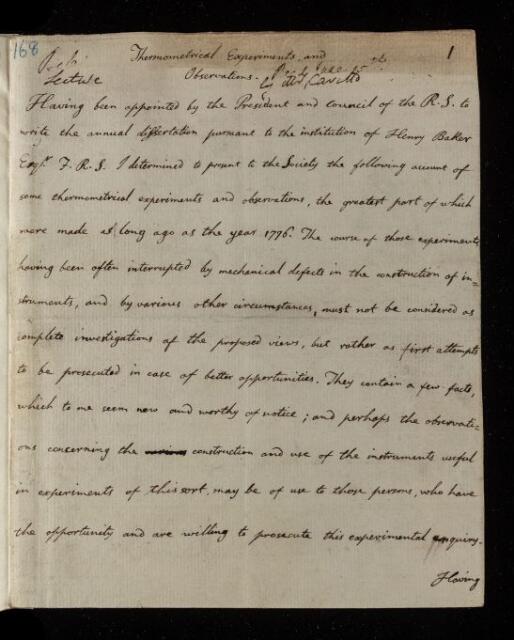 168
1
Thermometrical Experiments, and
Lecture
Observations.
by Mr. Cavallo
Having been appointed by the President and Council of the R.S. to
write the annual dissertation pursuant to the institution of Henry Baker
Esqr. F.R.S. I determined to present to the Society the following account of
some thermometrical experiments and observations, the greatest part of which
were made as long ago as the year 1776. The course of those experiments
having been often interrupted by mechanical defects in the construction of in=
struments, and by various other circumstances, must not be considered as
complete investigations of the proposed views, but rather as first attempts
to be prosecuted in case of better opportunities. They contain a few facts,
which to me seem new and worthy of notice; and perhaps the observati=
ons concerning the construction and use of the instruments useful
in experiments of this sort, may be of use to those persons, who have
the opportunity and are willing to prosecute this experimental enquiry.
Having